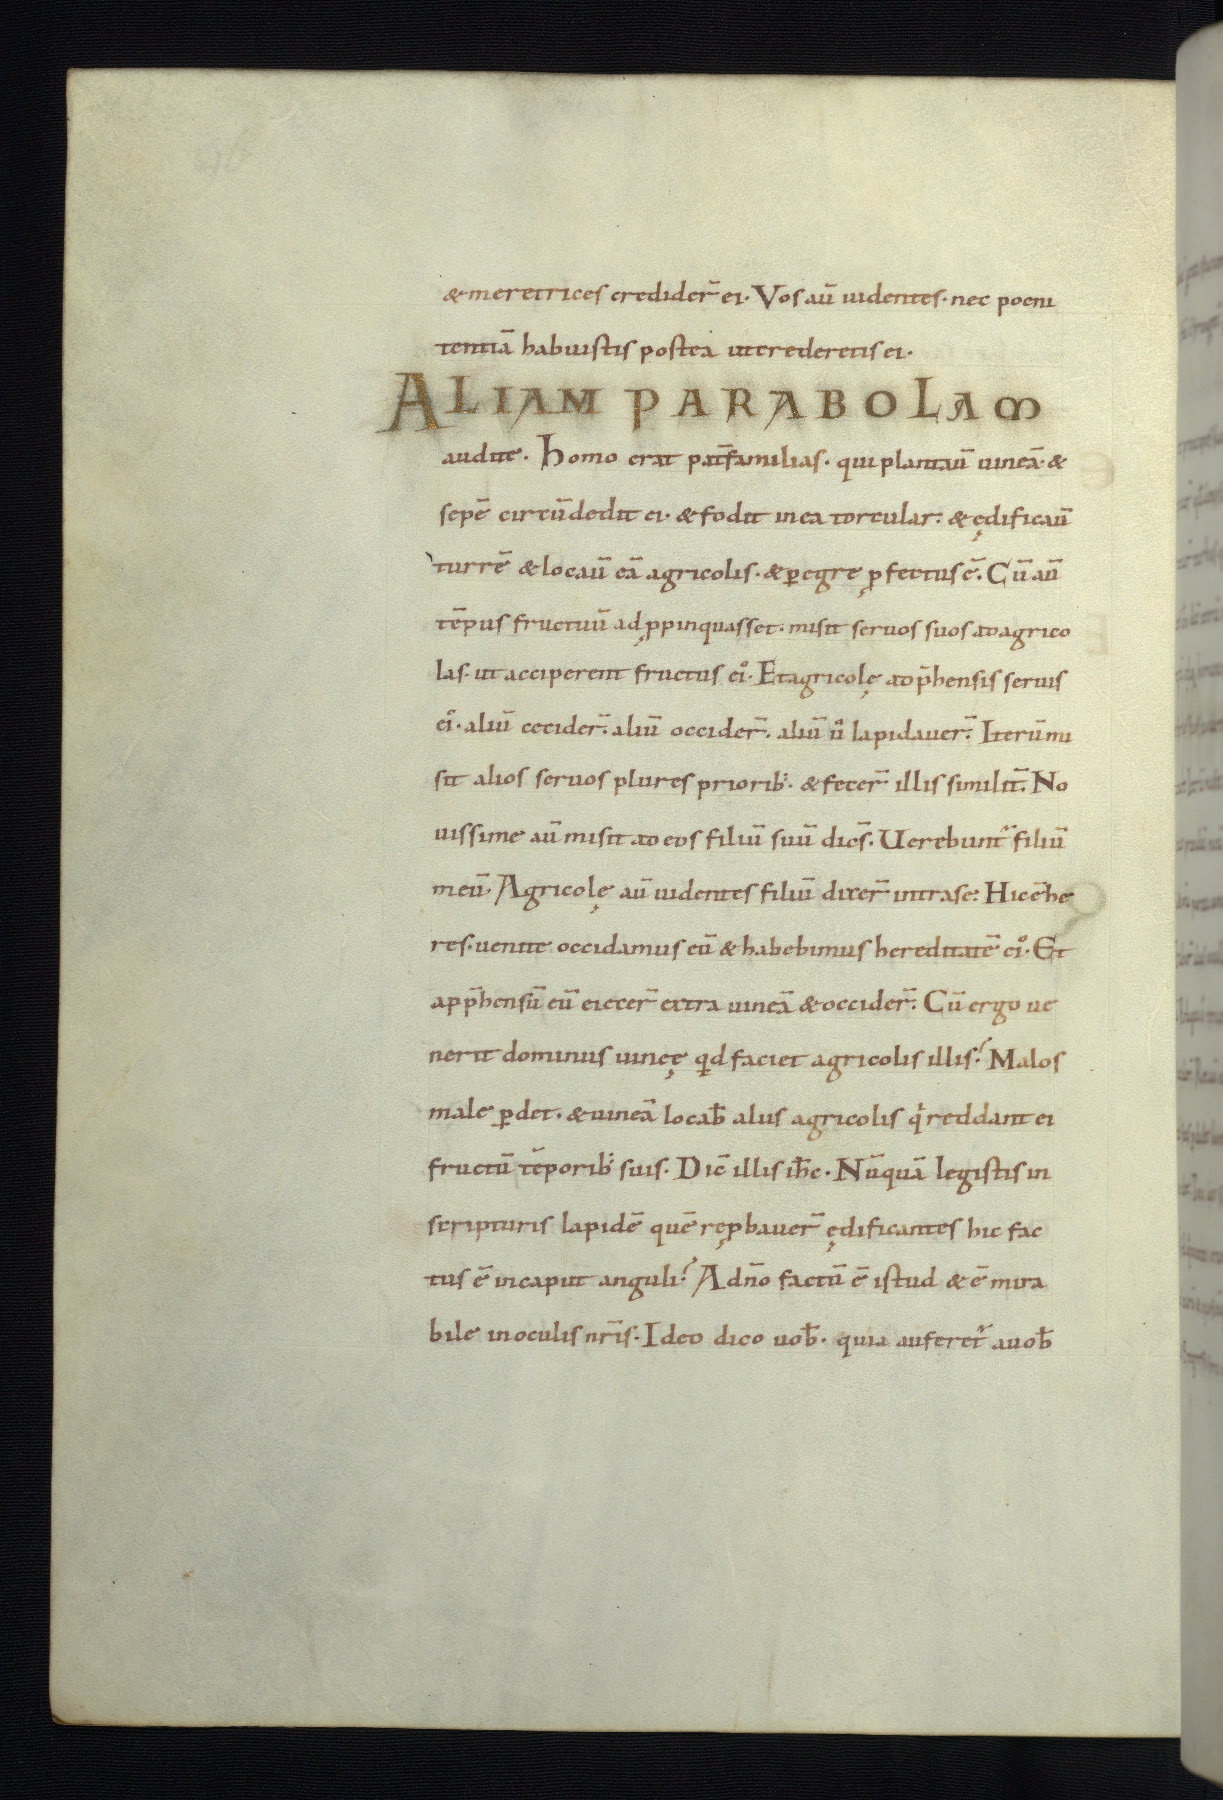 & meretrices credider̄ ei. Vos aū uidentes. nec poeni
tentiā habuistis postea ut crederetis ei.
ALIAM PARABOLAM
audite. Homo erat pat̄familias. qui plantauī uineā. &
sepē circūdedit ei. & fodit in ea torcular. & ędificauī
turrē & locauī eā agricolis. & ꝑegre ꝓfectus ē. Cū aū
tēpus fructuū adꝓpinquasset. misit seruos suos ad agrico
las. ut acciperent fructus ei᷒. Et agricolę adp̄hensis seruis
ei᷒. aliū cecider̄. aliū occider̄. aliū ů lapidauer̄. Iterū mi
sit alios seruos plures priorib;. & fecer̄ illis similit̄. No
uissime aū misit ad eos filiū suū dicēs. Uerebunt᷑ filiū
meū. Agricolę aū uidentes filiū dixer̄ intra se. Hic ē he
res. uenite occidamus eū & habebimus hereditatē ei᷒. Et
app̄hensū eū eiecer̄ extra uineā & occider̄. Cū ergo ue
nerit dominus uineę qͥd faciet agricolis illis? Malos
male ꝑdet. & uineā locab̄ aliis agricolis qͥ reddant ei
fructū tēporib; suis. Dic̄ illis ih̄c. Nūquā legistis in
scripturis lapidē quē reꝓbauer̄ ędificantes hic fac
tus ē in caput anguli? A dn̄o factū ē istud & ē mira
bile in oculis nr̄is. Ideo dico uob̄. quia auferet᷑ a uob̄